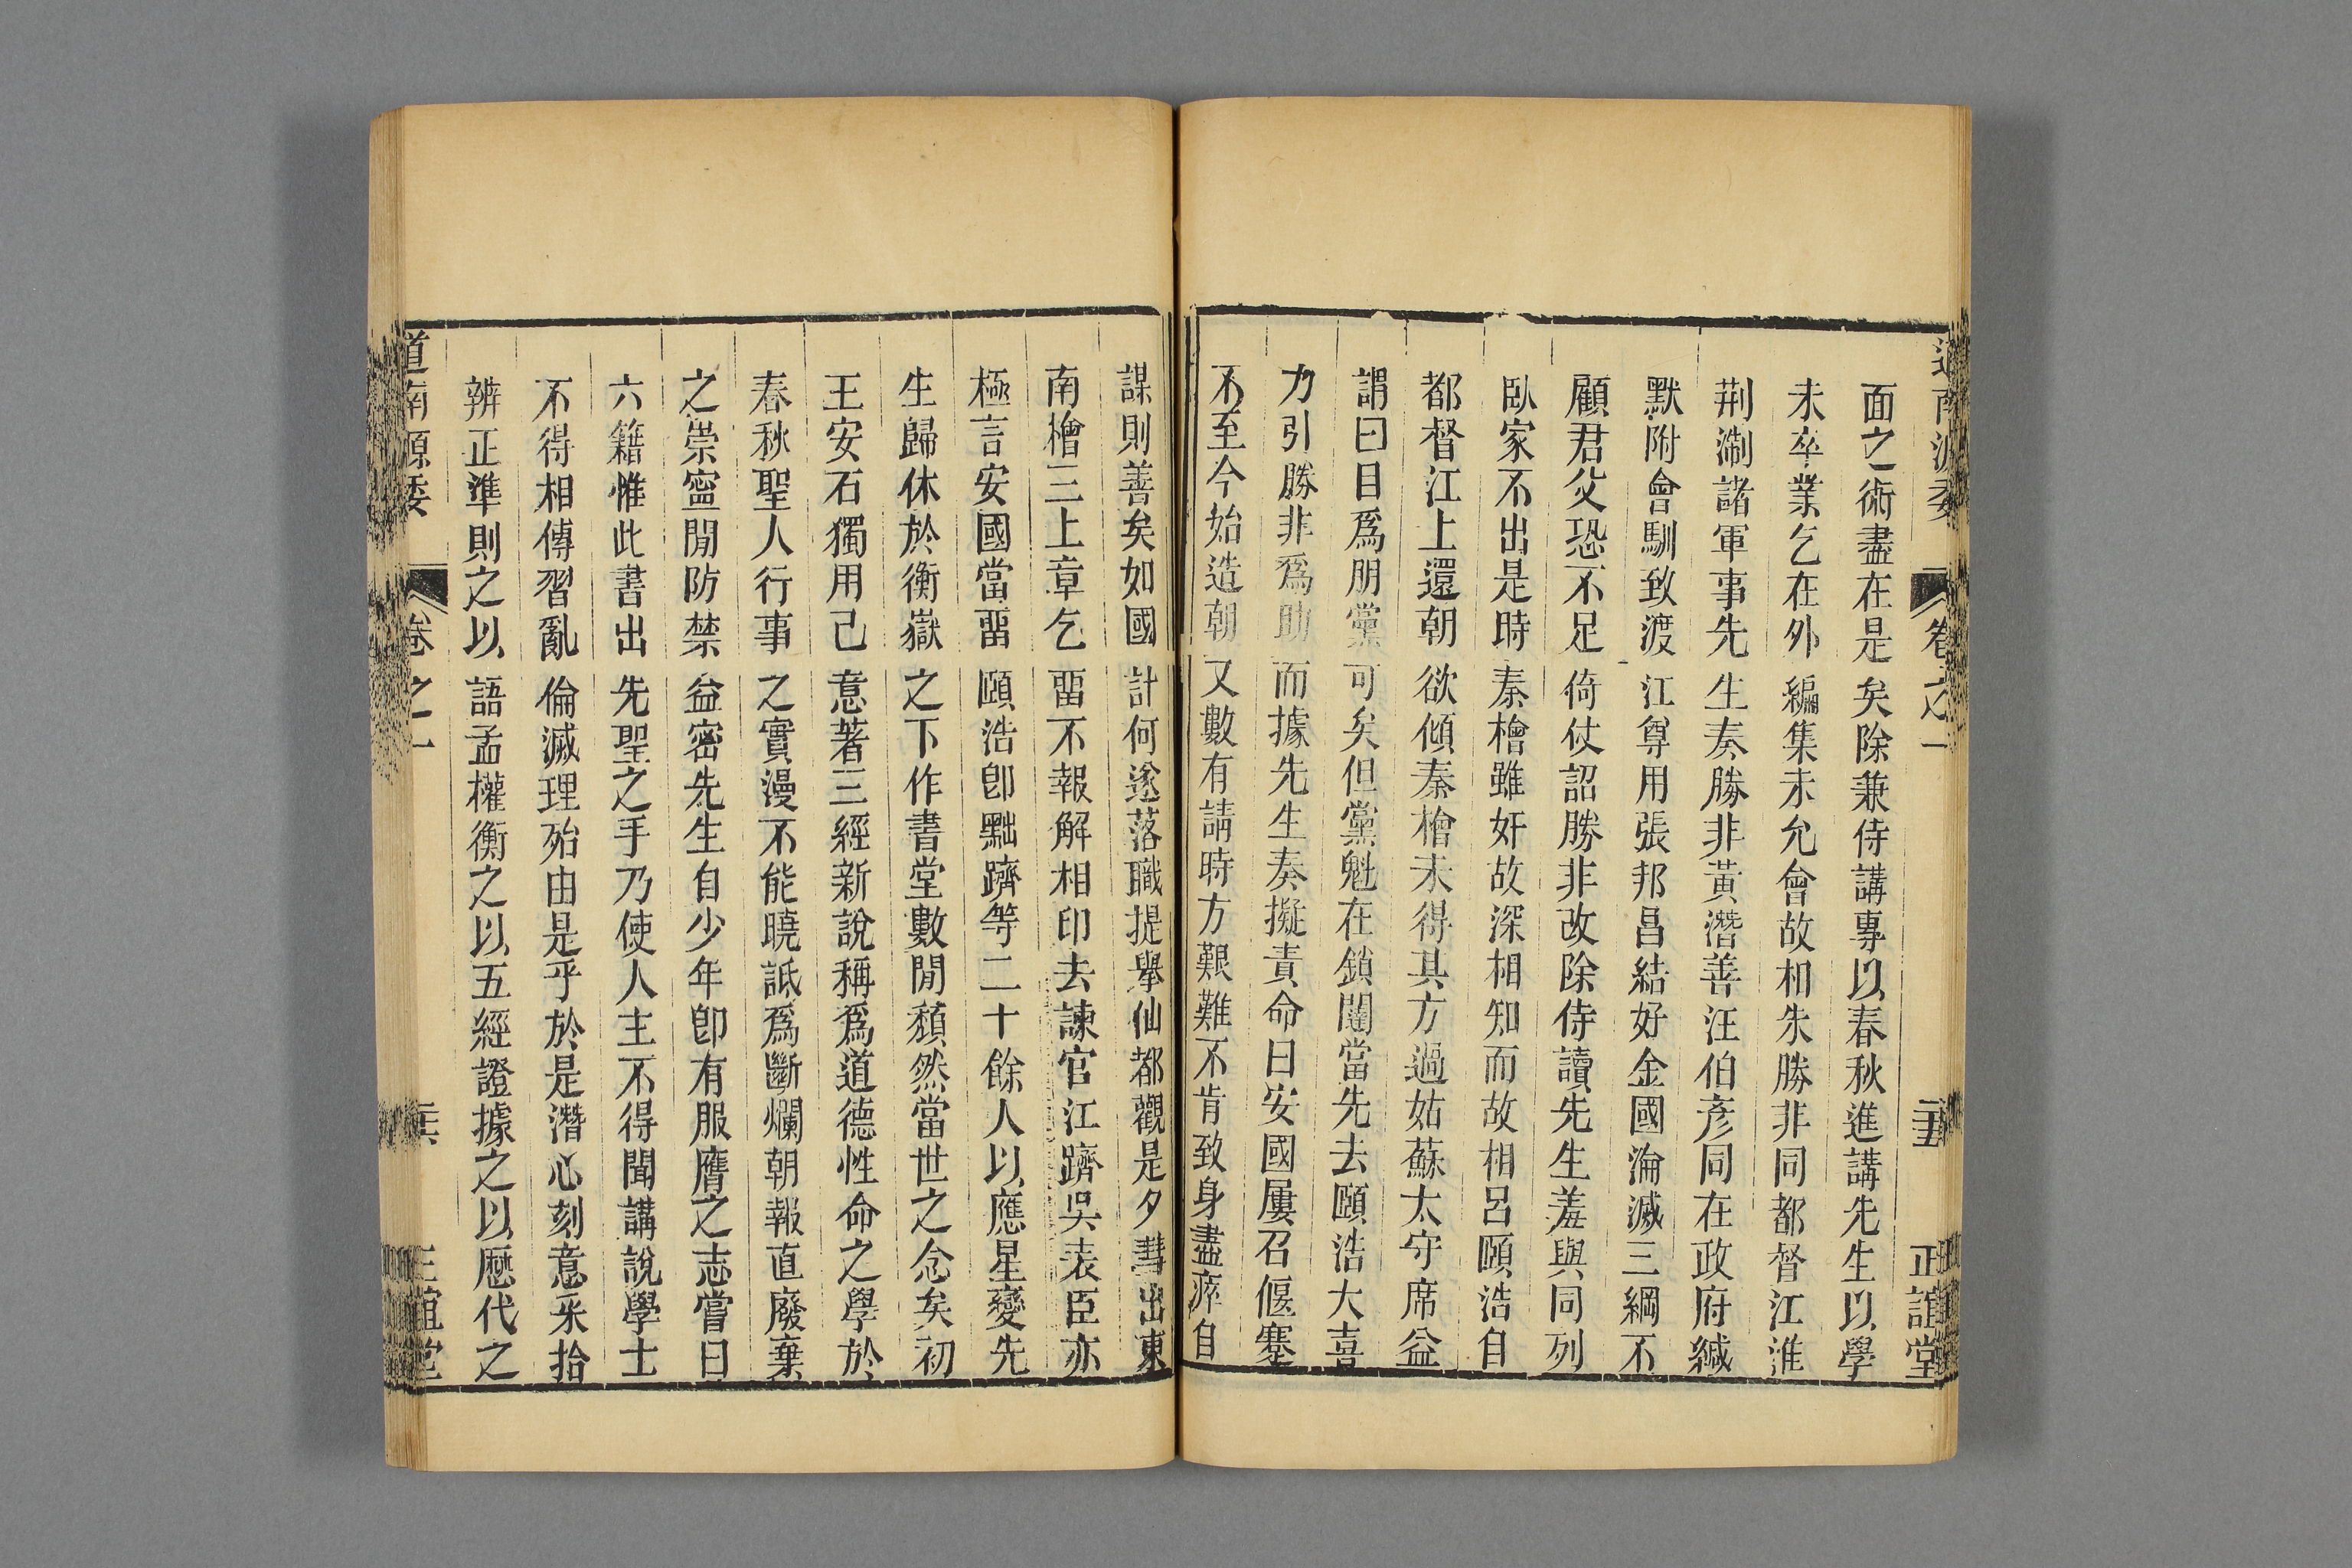 道南源委 卷之一 二十五 正誼堂
面之術盡在是矣除兼侍講專以春秋進講先生以學
未卒業乞在外編集未允會故相朱勝非同都督江淮
荆淛諸軍事先生奏勝非黃潛善汪伯彥同在政府緘
默附會馴致渡江尊用張邦昌結好金國淪滅三綱不
顧君父恐不足倚仗詔勝非改除侍讀先生羞與同列
臥家不出是時秦檜雖奸故深相知而故相呂頤浩自
都督江上還朝欲傾秦檜未得其方過姑蘇太守席益
謂曰目爲朋黨可矣但黨魁在鎖闥當先去頤浩大喜
力引勝非爲助而據先生奏擬責命曰安國屢召偃蹇
不至今始造朝又數有請時方艱難不肯致身盡瘁自
謀則善矣如國計何遂落職提舉仙都觀是夕彗出東
南檜三上章乞畱不報解相印去諫官江躋吳表臣亦
極言安國當畱頤浩卽黜躋等二十餘人以應星變先
生歸休於衡嶽之下作書堂數閒頹然當世之念矣初
王安石獨用己意著三經新說稱爲道德性命之學於
春秋聖人行事之實漫不能曉詆爲斷爛朝報直廢棄
之崇寧閒防禁益密先生自少年卽有服膺之志嘗曰
六籍惟此書出先聖之手乃使人主不得聞講說學士
不得相傳習亂倫滅理殆由是乎於是潛心刻意采拾
辨正準則之以語孟權衡之以五經證據之以歷代之
道南源委 卷之一 二十六 正誼堂